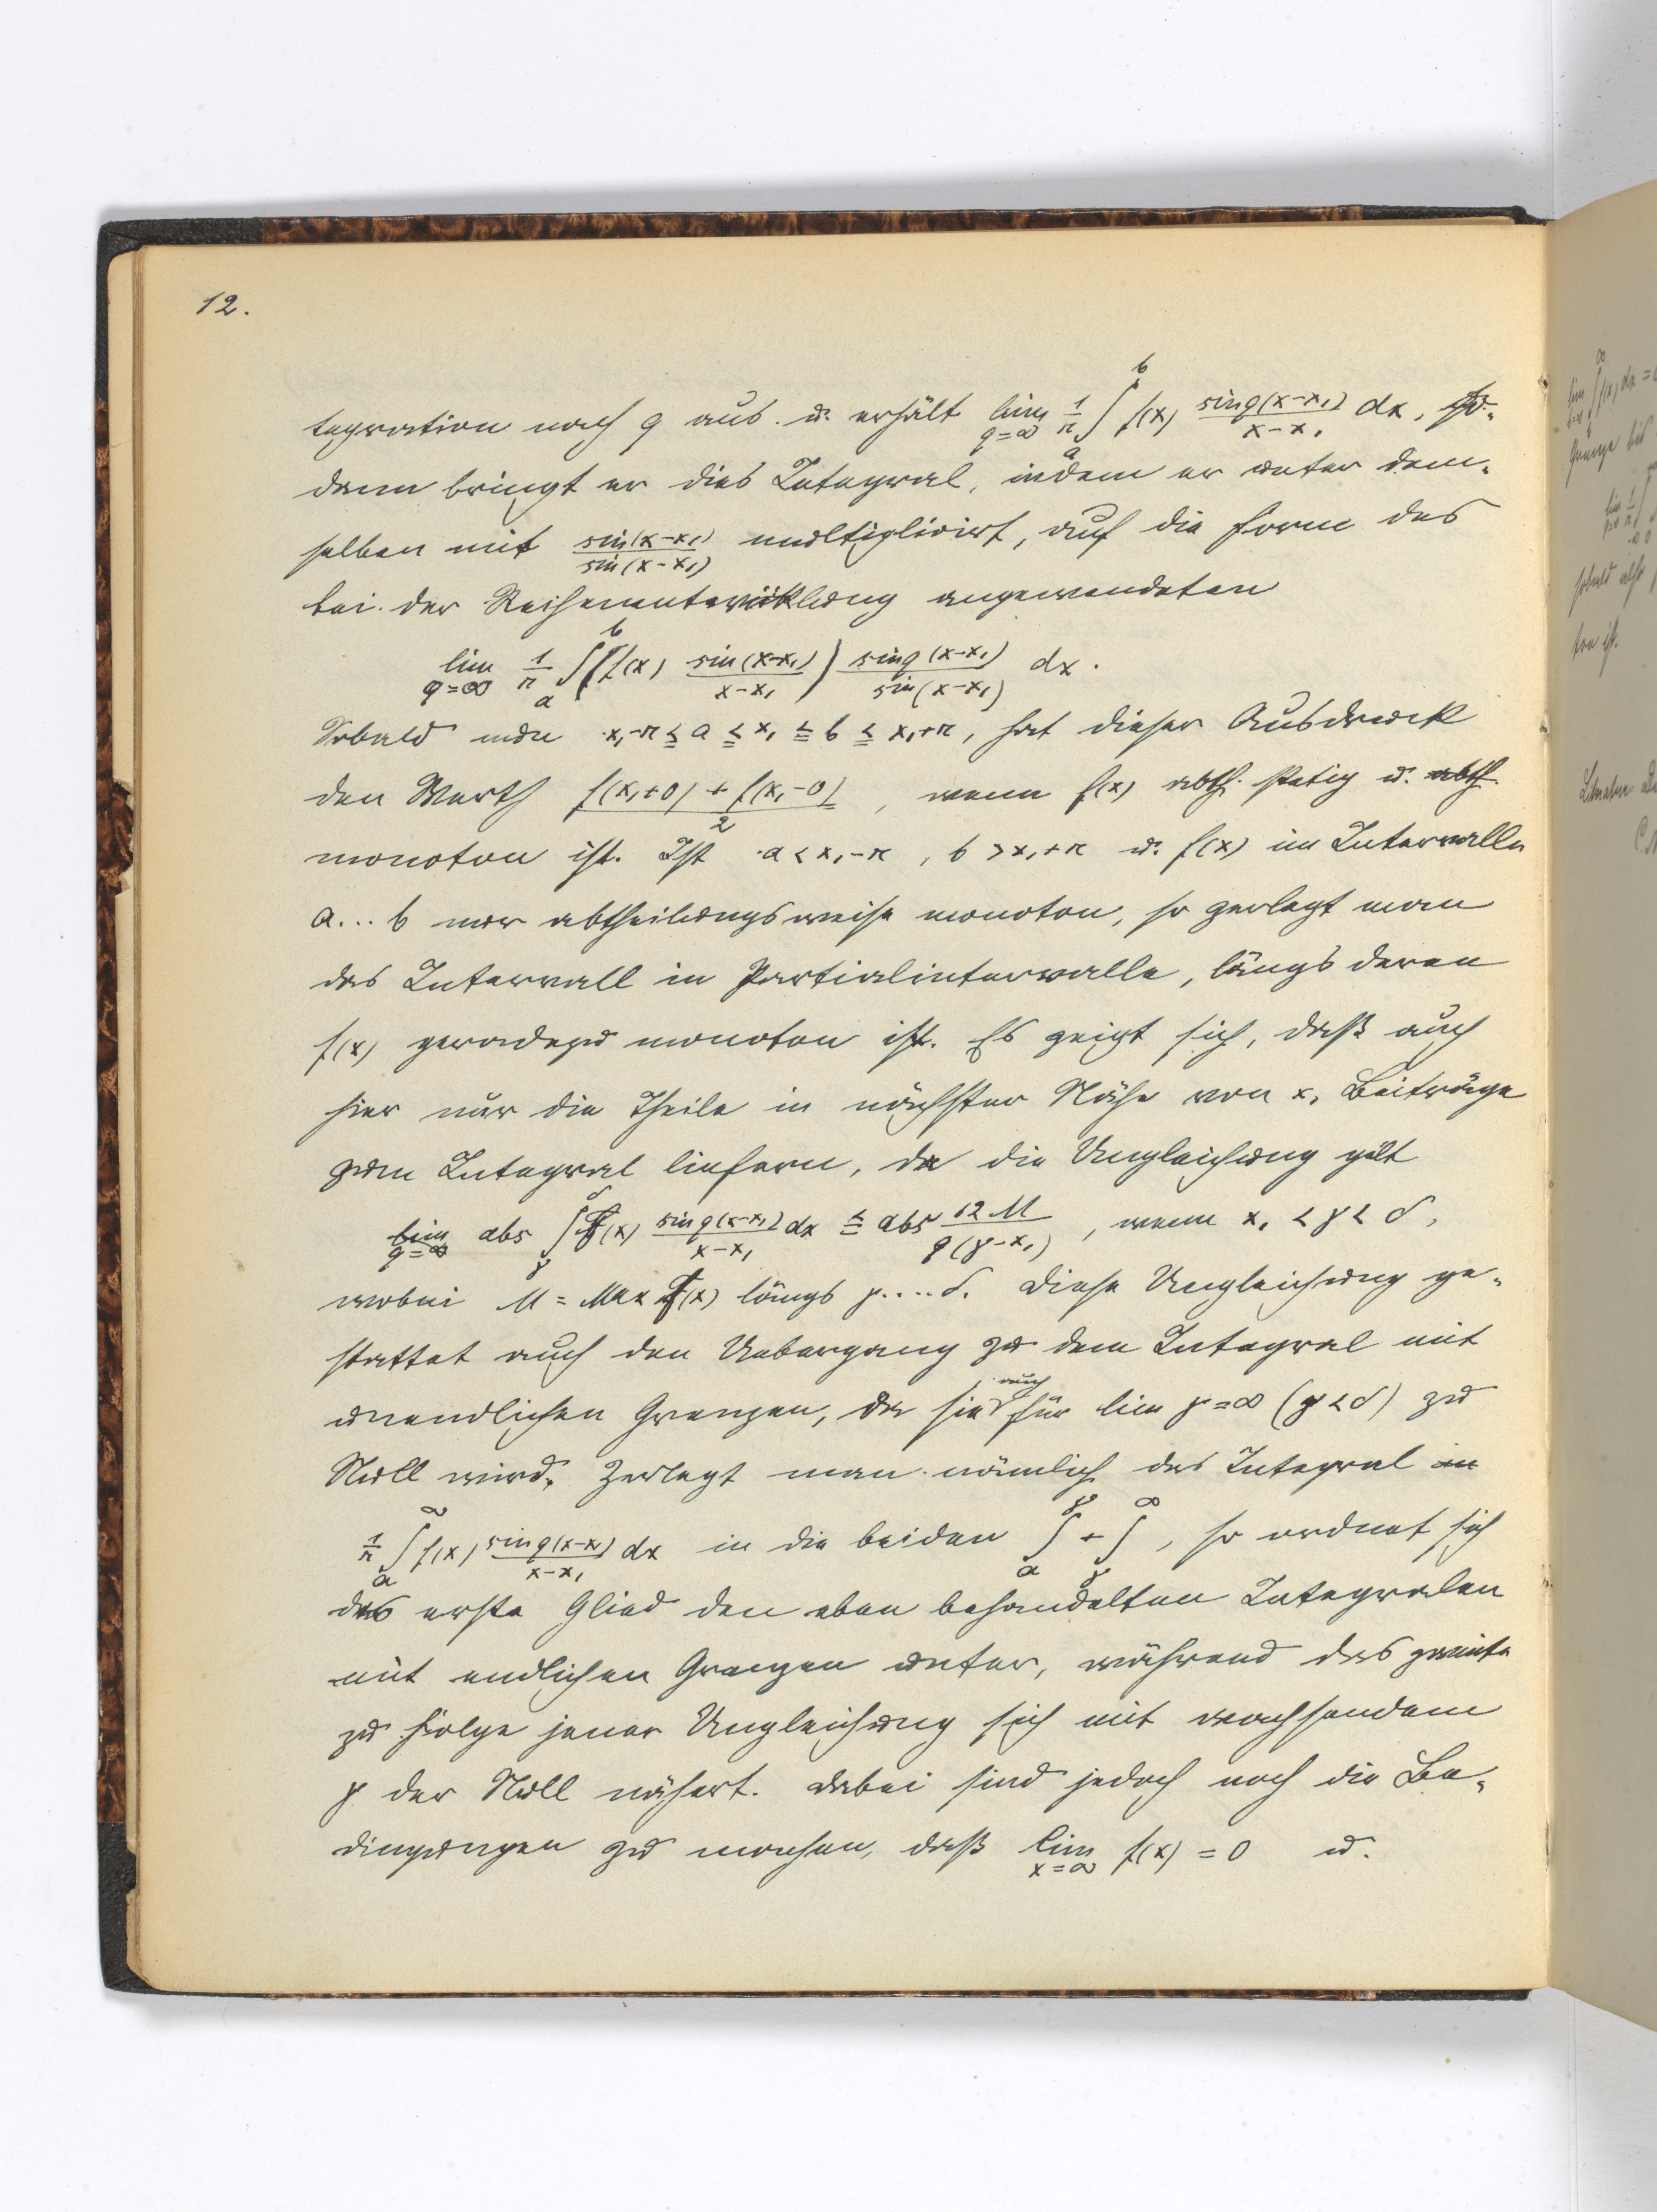 12.
tegration nach q aus u. erhält lim_{q=∞} 1/π ∫_a^b f(x) sin q(x-x₁)/(x-x₁) dx, so-
dann bringt er dies Integral, indem er unter dem-
selben mit sin(x-x₁)/sin(x-x₁) multiplicirt, auf die Form des
bei der Reihenentwicklung angewendeten
lim_{q=∞} 1/π ∫_a^b (f(x) sin(x-x₁)/(x-x₁)) sin q(x-x₁)/sin(x-x₁) dx.
Sobald nun x₁-π ≦ a ≦ x₁ ≦ b ≦ x₁+π, hat dieser Ausdruck
den Werth (f(x₁+0) + f(x₁-0))/2, wenn f(x) abth. stetig u. abth.
monoton ist. Ist a < x₁-π, b > x₁+π u. f(x) im Intervalle
a...b nur abtheilungsweise monoton, so zerlegt man
das Intervall in Partialintervalle, längs deren
f(x) geradezu monoton ist. Es zeigt sich, daß auch
hier nur die Theile in nächster Nähe von x₁ Beiträge
zum Integral liefern, da die Ungleichung gilt
abs ∫_γ^δ f(x) sin q(x-x₁)/(x-x₁) dx ≦ abs 12 M/(q(γ-x₁)), wenn x₁ < γ < δ,
wobei M = Max f(x) längs γ....δ. Diese Ungleichung ge-
stattet auch den Uebergang zu dem Integral mit
unendlichen Grenzen, da sie auch für lim γ=∞ (γ<δ) zu
Null wird. Zerlegt man nämlich das Integral
1/π ∫_a^∞ f(x) sin q(x-x₁)/(x-x₁) dx in die beiden ∫_a^γ + ∫_γ^∞, so ordnet sich
das erste Glied den eben behandelten Integralen
mit endlichen Grenzen unter, während das zweite
zu Folge jener Ungleichung sich mit wachsendem
γ der Null nähert. Dabei sind jedoch noch die Be-
dingungen zu machen, daß lim_{x=∞} f(x) = 0 u.